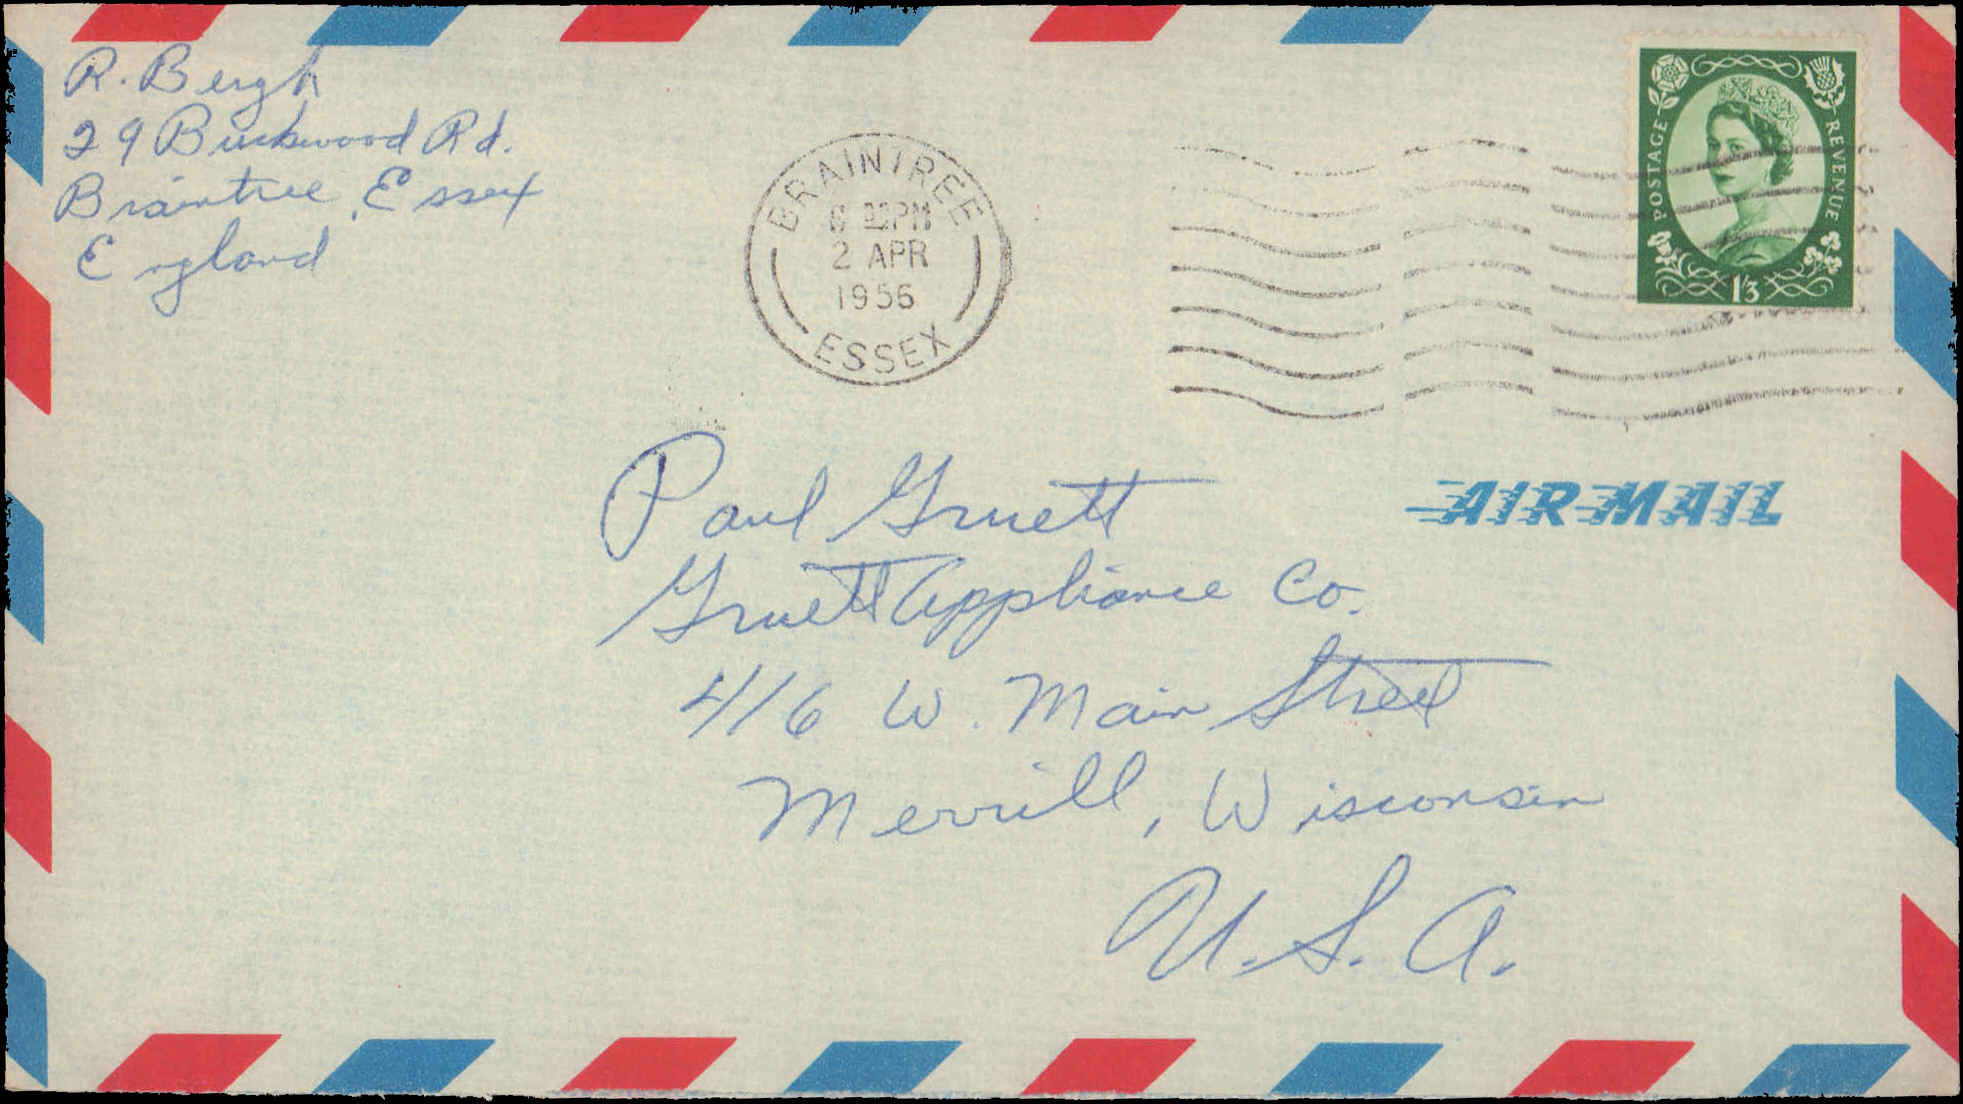 R. Bergh
29 Buckwood Rd.
Braintree, Essex
England
BRAINTREE
PM
2 APR
1956
ESSEX
POSTAGE
REVENUE
1/3
AIR MAIL
Paul Gruett
Gruett Appliance Co.
416 W. Main Street
Merrill, Wisconsin
U.S.A.